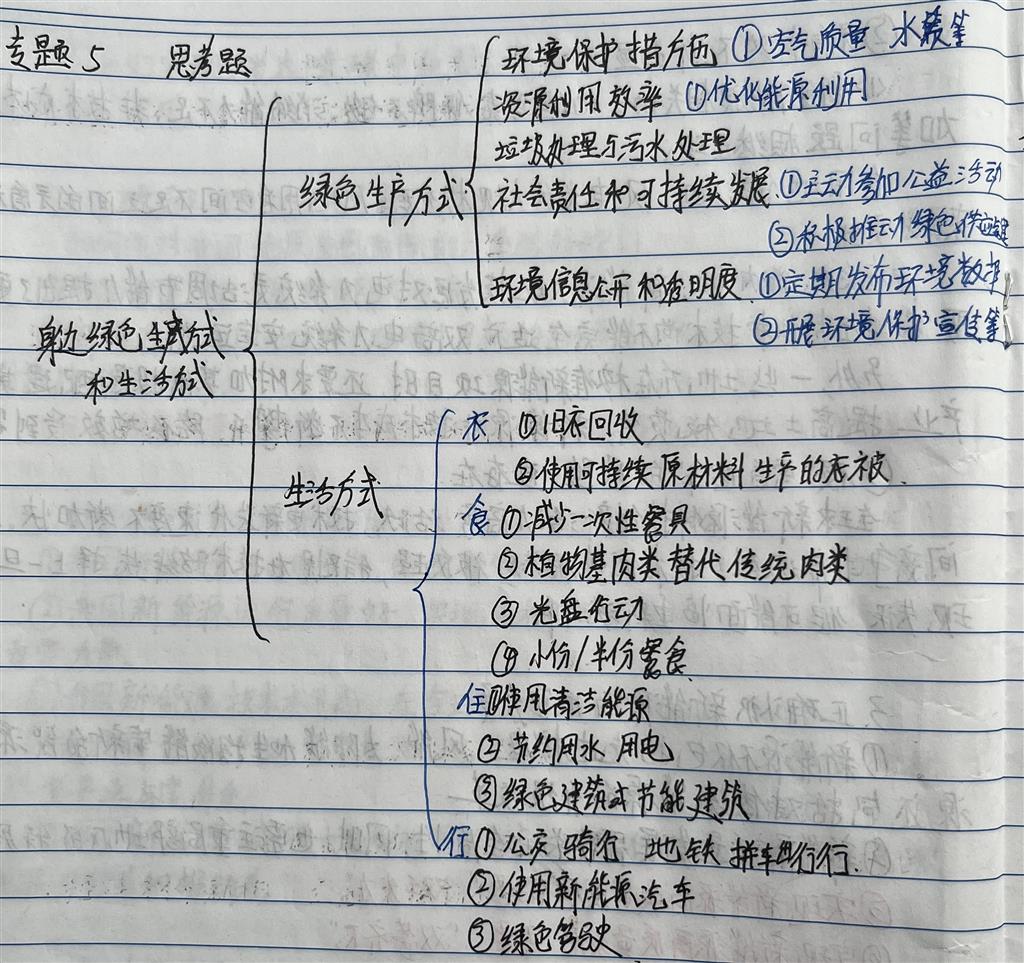 专题5 思考题
环境保护措方面 ①空气质量 水
资源利用效率 ①优化能源利用
垃圾处理与污水处理
绿色生产方式
社会责任和可持续发展 ①主动参加公益活动
②积极推动绿色供应链
环境信息公开和透明度 ①定期发布环境数据
②开展环境保护宣传等
身边绿色生产方式
和生活方式
生活方式
衣 ①旧衣回收
②使用可持续原材料生产的衣被.
食 ①减少一次性餐具
②植物基肉类替代传统肉类
③光盘行动
④小份/半份餐食
住 ①使用清洁能源
②节约用水 用电
③绿色建筑或节能建筑
行 ①公交 骑行 地铁 拼车
②使用新能源汽车
③绿色驾驶